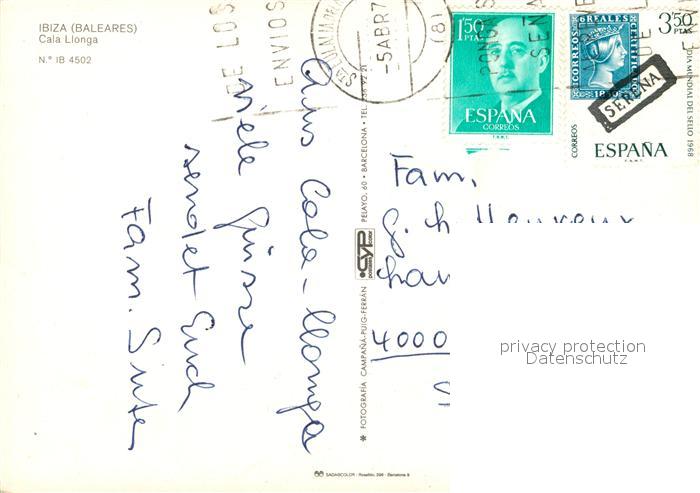 IBIZA (BALEARES)
Cala Llonga
N.° IB 4502
DE LOS
ENVIOS
5ABR7
(8)
1'50 PTAS
ESPAÑA
CORREOS
F.N.M.T.
6 REALES
CORREOS
CERTIFICDO
1850
3'50 PTAS
DIA MUNDIAL DEL SELLO 1968
SERENA
CORREOS
ESPAÑA
F.N.M.T.
Aus Cala-Llonga
viele Grüsse
sendet Euch
Fam.
Fam.
G. h.
4000
PELAYO, 60 • BARCELONA • TEL.
CYP
postales color
* FOTOGRAFÍA CAMPAÑÁ-PUIG-FERRÁN
SADAGCOLOR - Rosellón, 298 - Barcelona 9
privacy protection
Datenschutz